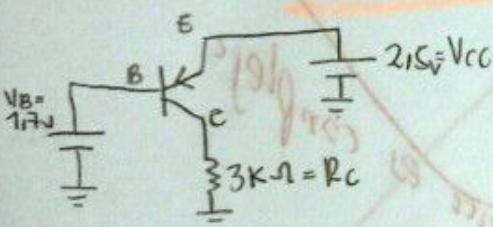 E
2,5v=VCC
B
VB=
1,7v
C
3KΩ=RC